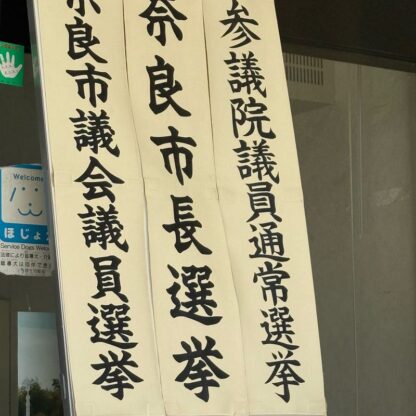 参議院議員通常選挙
奈良市長選挙
奈良市議会議員選挙
Welcome
ほじょ
Service Dogs Welco